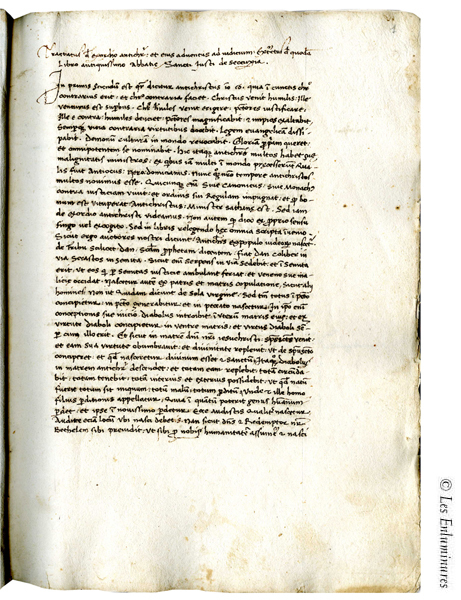 Tractatus de exordio antichristi et eius adventus ad iudicium. Extractus de quodam
Libro antiquissimo abbatie Sancti Iusti de secuxia.
In primis sciendum est quare dicitur antichristus id est quia in cunctis christo
contrarius erit et christo contraria faciet. Christus venit humilis. Ille
venturus est superbus. Christus humiles venit erigere peccatores iustificare
Ille e contra humiles deiciet peccatores magnificabit et impios exaltabit
Semperque vitia contraria virtutibus docebit. Legem evangelicam dissi
pabit. Demonum culturam in mundo revocabit. Gloriam propriam queret
et omnipotentem se nominabit. Hic itaque antichristus multos habet sue
malignitatis ministros ex quibus iam multi in mundo precesserunt qua
lis fuit Antiocus Nero domicianus. Nunc quoque nostro tempore antichristos
multos novimus esse. Quicumque enim Sive canonicus Sive Monachus
contra iustitiam vivit et ordinis sui Regulam impugnat et quod bo
num est vituperat Antichristus Minister sathane est. Sed iam
de exordio Antichristi videamus. Non autem quod dico ex proprio sensu
fingo vel excogito Sed in libris relegendo hec omnia scripta invenio
Sicut ergo auctores nostri dicunt Antichristus ex populo iudeorum nascetur
de tribu scilicet dan Secundum prophetam dicentem fiat dan coluber in
via Cerastes in semita. Sicut enim serpens in via sedebit et in semita
erit ut eos qui per semitas iusticie ambulant feriat et veneno sue ma
licie occidat. Nascetur autem ex patris et matris copulatione sicut alii
homines Non ut Quidam dicunt de sola virgine Sed tamen totus in peccato
concipietur in peccato generabitur et in peccato nascetur. In ipso enim
conceptionis sue initio diabolus introibit in uterum matris eius et ex
virtute diaboli concipietur in ventre matris et virtus diaboli sem
per cum illo erit. Et sicut in matre domini nostri iesu christi spiritus sanctus venit
et eam sua virtute obumbravit et divinitate replevit ut de spiritu sancto
conciperet et quod nasceretur divinum esset et sanctum Ita quoque diabolus
in matrem antichristi descendet et totam eam replebit totam circunda
bit totam tenebit totam interius et exterius possidebit ut quod natum
fuerit totum sit iniquum totum malum totum perditum Unde et ille homo
filius perditionis appellatur Quia in quantum poterit genus humanum
perdet et ipse in novissimo perdetur. Ecce audistis Qualiter nascetur
Audite etiam locum ubi nasci debet. Nam sicut dominus et Redemptor noster
Bethelem sibi previdit ut sibi pro nobis humanitatem assumere et nasci
© Les Enluminures